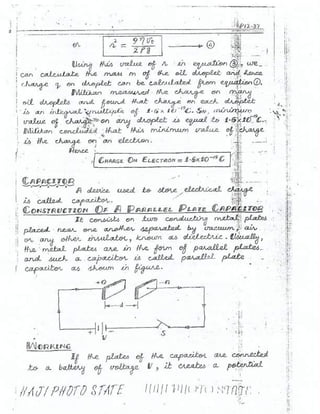 P12-37
or r² = 9ηVt / 2ρg → ④
Using this value of r in equation ③, we
can calculate the mass m of the oil droplet and hence
charge q on droplet can be calculated from equation ①.
Millikan measured the charge on many
oil droplets and found that charge on each droplet
is an integral multiple of 1.6 × 10⁻¹⁹C. So, minimum
value of charge on any droplet is equal to 1.6×10⁻¹⁹C.
Millikan concluded that this minimum value of charge
is the charge on an electron.
Hence
CHARGE ON ELECTRON = 1.6×10⁻¹⁹ C
CAPACITOR
A device used to store electrical charge
is called capacitor.
CONSTRUCTION OF A PARALLEL PLATE CAPACITOR
It consists on two conducting metal plates
placed near one another separated by vacuum, air
or any other insulator, known as dielectric. Usually,
the metal plates are in the form of parallel plates
and such a capacitor is called parallel plate
capacitor as shown in figure.
+Q -Q
d
+ -
V S
WORKING
If the plates of the capacitor are connected
to a battery of voltage V, it creates a potential
HAJI PHOTO STATE